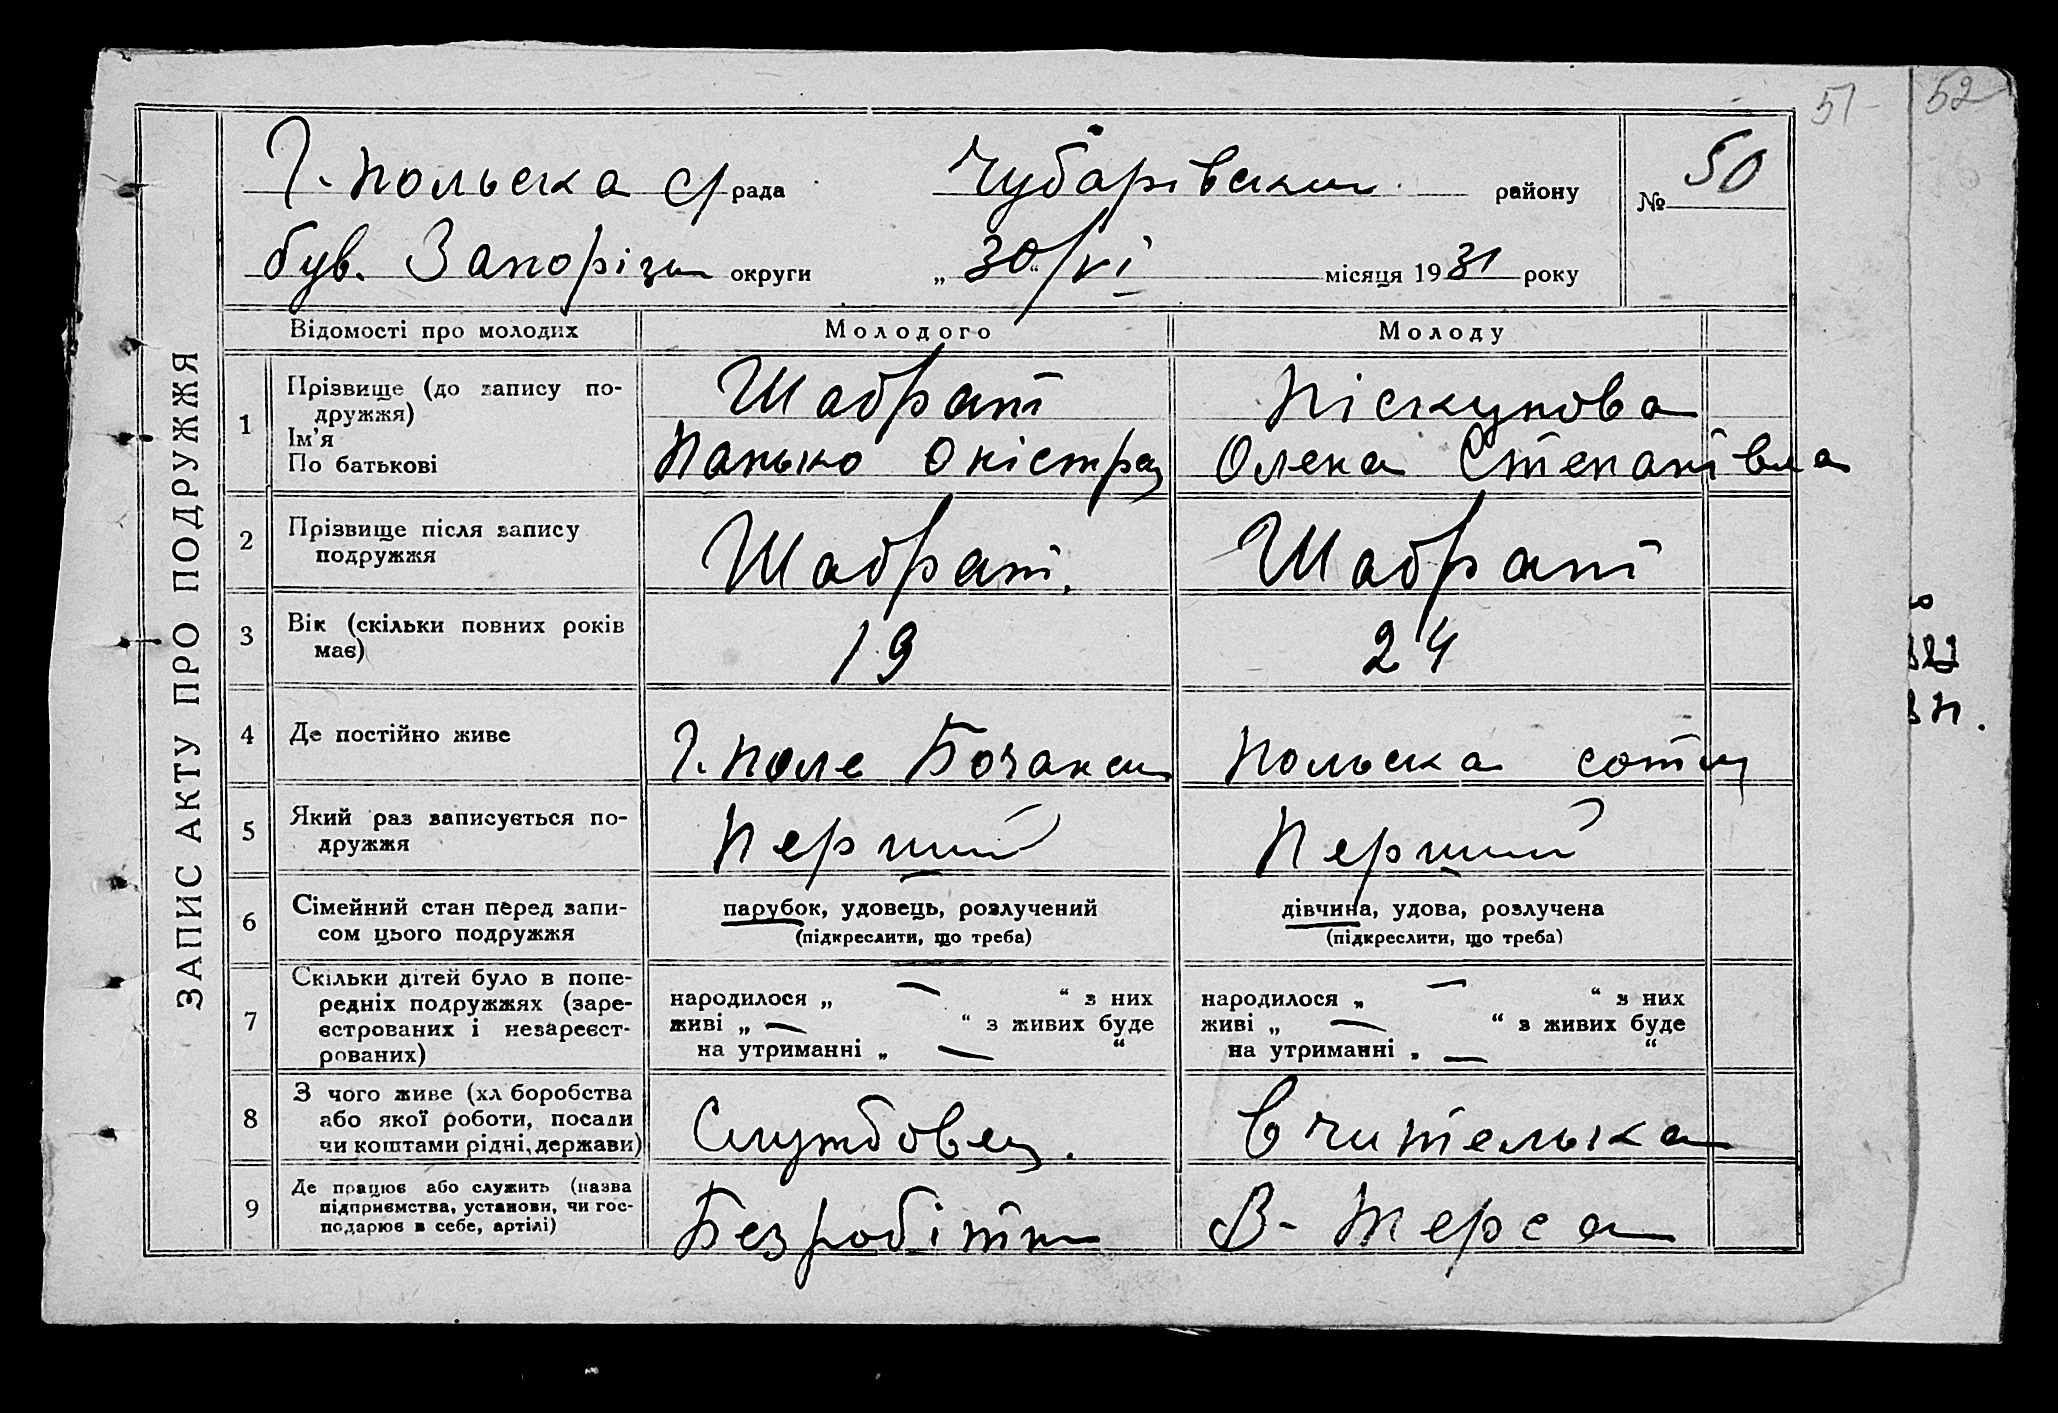 51 52
Г. Польска с/рада Чубарівськ району № 50
був. Запоріз округи „30“/VI місяця 1931 року
ЗАПИС АКТУ ПРО ПОДРУЖЖЯ
Відомості про молодих Молодого Молоду
1 Прізвище (до запису по-
дружжя)
Ім’я
По батькові
Шабрат
Панько Оністрац
Піскунова
Олена Степанівна
2 Прізвище після запису
подружжя
Шабрат. Шабрат
3 Вік (скільки повних років
має)
19 24
4 Де постійно живе Г. поле Бочани Польска сотн
5 Який раз записується по-
дружжя
Перший Перший
6 Сімейний стан перед запи-
сом цього подружжя
парубок, удовець, розлучений
(підкреслити, що треба)
дівчина, удова, розлучена
(підкреслити, що треба)
7 Скільки дітей було в попе-
редніх подружжях (заре-
єстрованих і незареєст-
рованих)
народилося „ — “ з них
живі „ — “ з живих буде
на утриманні „ — “
народилося „ — “ з них
живі „ — “ з живих буде
на утриманні „ — “
8 З чого живе (хліборобства
або якої роботи, посади
чи коштами рідні, держави)
Службовец. Вчителька
9 Де працює або служить (назва
підприємства, установи, чи гос-
подарює в себе, артілі)
Безробітн В-Терса